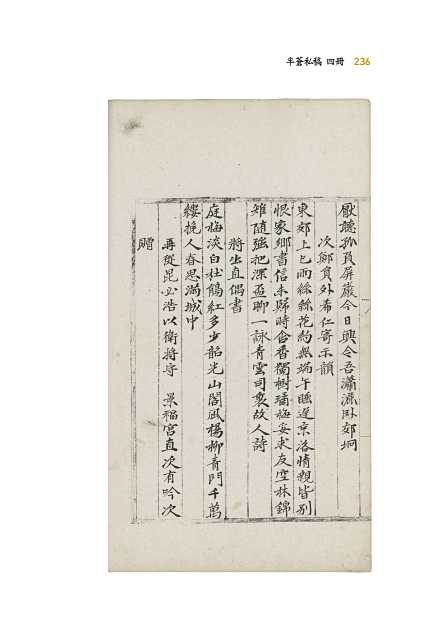 半蒼私稿 四冊 236
厭聽孤負屏巖今日興令吾瀟灑卧郊坰
次鄭員外希仁寄示韻
東郊上巳雨絲絲花約無端午睡遲京洛情親皆別
恨家鄉書信未歸時含香獨樹璚梅妥束友空林錦
雉随强把深盃聊一詠青雲司
故人詩
將出直偶書
庭梅淡白杜鵑紅多少韶光山閣風楊柳青門千萬
縷挽人春思滿城中
再從昆必浩以衛將守 景福宮直次有吟次
贈